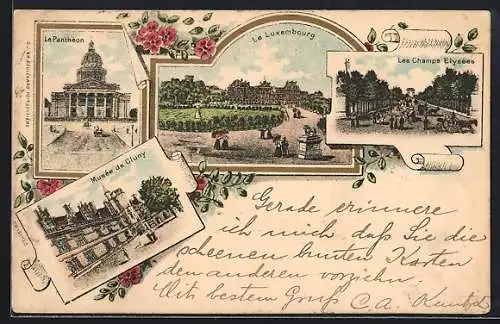 Le Panthéon
Le Luxembourg
Les Champs Elysées
Musée de Cluny
Gerade erinnere
ich mich daß Sie die
scheenen bunten Karten
den anderen vorziehen
Mits bestem Gruß C.A.